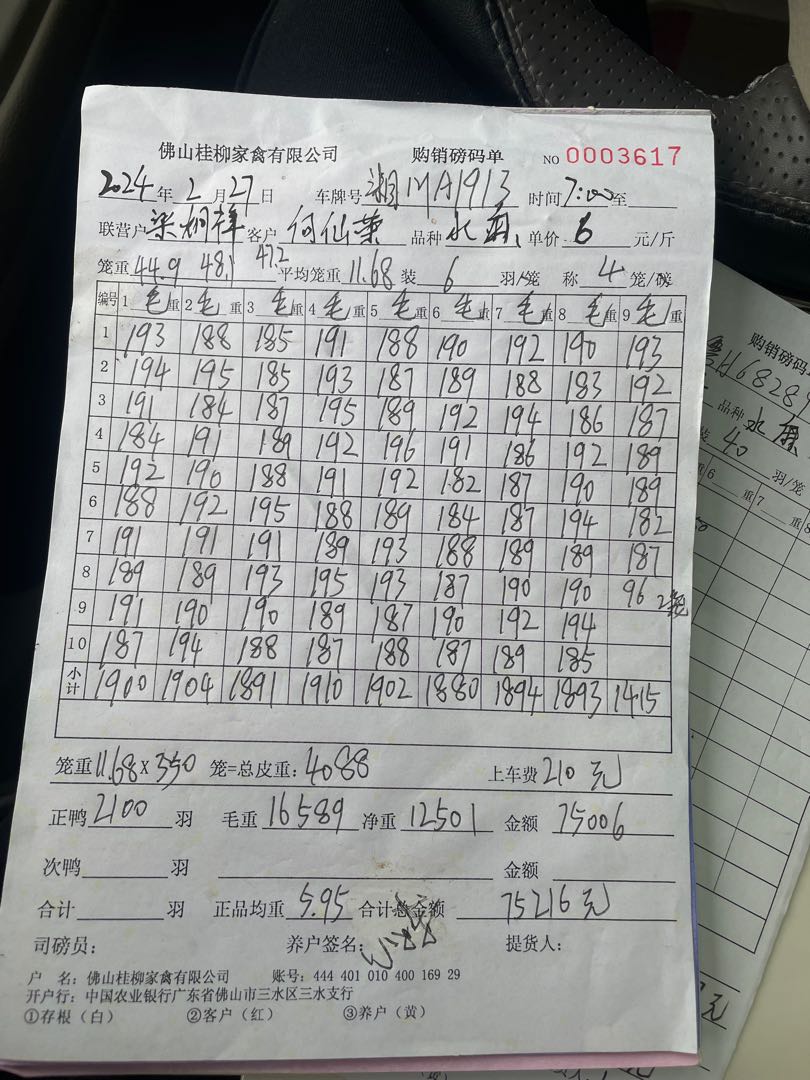 佛山桂柳家禽有限公司 购销磅码单 NO 0003617
2024年2月27日 车牌号 湘MA1913 时间7:00至
联营户 梁炳祥 客户 何仙荣 品种 水 单价 6 元/斤
笼重 44.9 48.1 47.2 平均笼重 11.68 装 6 羽/笼 称 4 笼/磅
编号 1毛重 2毛重 3毛重 4毛重 5毛重 6毛重 7毛重 8毛重 9毛重
1 193 188 185 191 188 190 192 190 193
2 194 195 185 193 187 189 188 183 192
3 191 184 187 195 189 192 194 186 187
4 184 191 189 192 196 191 186 192 189
5 192 190 188 191 192 182 187 190 189
6 188 192 195 188 189 184 187 194 182
7 191 191 191 189 193 188 189 189 187
8 189 189 193 195 193 187 190 190 96 2
9 191 190 190 189 187 190 192 194
10 187 194 188 187 188 187 189 185
小计 1900 1904 1891 1910 1902 1880 1894 1893 1415
笼重11.68×350 笼=总皮重:4088 上车费 210元
正鸭 2100 羽 毛重 16589 净重 12501 金额 75006
次鸭 羽 金额
合计 羽 正品均重 5.95 合计总金额 75216元
司磅员: 养户签名: 提货人:
户 名:佛山桂柳家禽有限公司 账号:444 401 010 400 169 29
开户行:中国农业银行广东省佛山市三水区三水支行
①存根(白) ②客户(红) ③养户(黄)
购销磅码
H68289
品种 水
装 40 羽/笼
6 重 7 重 8
元